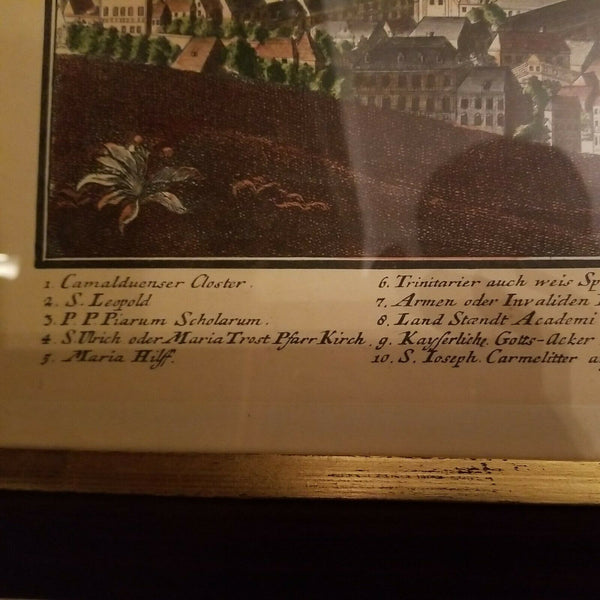 1. Camalduenser Closter.
2. S. Leopold
3. P P Piarum Scholarum.
4. S. Ulrich oder Maria Trost Pfarr Kirch.
5. Maria Hilff.
6. Trinitarier auch weis Sp
7. Armen oder Invaliden
8. Land Stændt Academi
9. Kayserliche Gotts-Acker
10. S. Ioseph. Carmelitter